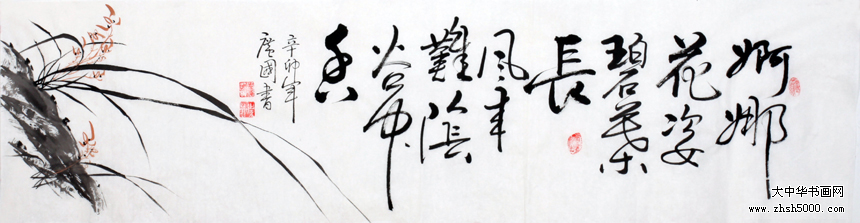 婀娜
花姿
碧葉
長
風来
難隐
谷中
香
辛卯年
國書
大中华书画网
www.zhsh5000.com